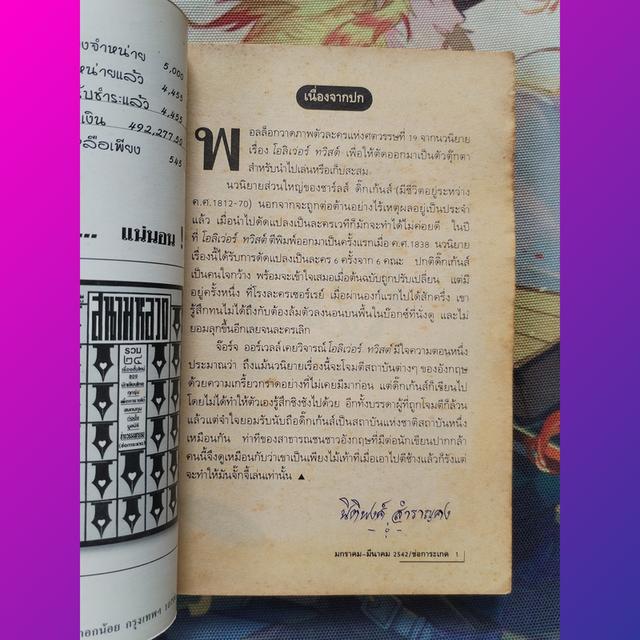 งจำหน่าย 5,000
หน่ายแล้ว 4,455
ับชำระแล้ว 4,455
เงิน 492,277.50
หลือเพียง 545
... แน่นอน !
สนามหลวง
รวม
๒๔
เนื่องจากปก
พอลล็อกวาดภาพตัวละครแห่งศตวรรษที่ 19 จากนวนิยาย
เรื่อง โอลิเว่อร์ ทวิสต์ เพื่อให้ตัดออกมาเป็นตัวตุ๊กตา
สำหรับนำไปเล่นหรือเก็บสะสม
นวนิยายส่วนใหญ่ของชาร์ลส์ ดิ๊กเก้นส์ (มีชีวิตอยู่ระหว่าง
ค.ศ.1812-70) นอกจากจะถูกต่อต้านอย่างไร้เหตุผลอยู่เป็นประจำ
แล้ว เมื่อนำไปดัดแปลงเป็นละครเวทีก็มักจะทำได้ไม่ค่อยดี ในปี
ที่ โอลิเว่อร์ ทวิสต์ ตีพิมพ์ออกมาเป็นครั้งแรกเมื่อ ค.ศ.1838 นวนิยาย
เรื่องนี้ได้รับการดัดแปลงเป็นละคร 6 ครั้งจาก 6 คณะ ปกติดิ๊กเก้นส์
เป็นคนใจกว้าง พร้อมจะเข้าใจเสมอเมื่อต้นฉบับถูกปรับเปลี่ยน แต่มี
อยู่ครั้งหนึ่ง ที่โรงละครเซอร์เรย์ เมื่อผ่านองก์แรกไปได้สักครึ่ง เขา
รู้สึกทนไม่ได้ถึงกับต้องล้มตัวลงนอนบนพื้นในบ๊อกซ์ที่นั่งดู และไม่
ยอมลุกขึ้นอีกเลยจนละครเลิก
จ๊อร์จ ออร์เวลล์เคยวิจารณ์ โอลิเว่อร์ ทวิสต์ มีใจความตอนหนึ่ง
ประมาณว่า ถึงแม้นวนิยายเรื่องนี้จะโจมตีสถาบันต่างๆ ของอังกฤษ
ด้วยความเกรี้ยวกราดอย่างที่ไม่เคยมีมาก่อน แต่ดิ๊กเก้นส์ก็เขียนไป
โดยไม่ได้ทำให้ตัวเองรู้สึกชิงชังไปด้วย อีกทั้งบรรดาผู้ที่ถูกโจมตีก็ล้วน
แล้วแต่จำใจยอมรับนับถือดิ๊กเก้นส์เป็นสถาบันแห่งชาติสถาบันหนึ่ง
เหมือนกัน ท่าทีของสาธารณชนชาวอังกฤษที่มีต่อนักเขียนปากกล้า
คนนี้จึงดูเหมือนกับว่าเขาเป็นเพียงไม้เท้าที่เมื่อเอาไปตีช้างแล้วก็รังแต่
จะทำให้มันจั๊กจี้เล่นเท่านั้น ▲
นิติพงศ์ สำราญคง
มกราคม-มีนาคม 2542/ช่อการะเกด 1
อกน้อย กรุงเทพฯ